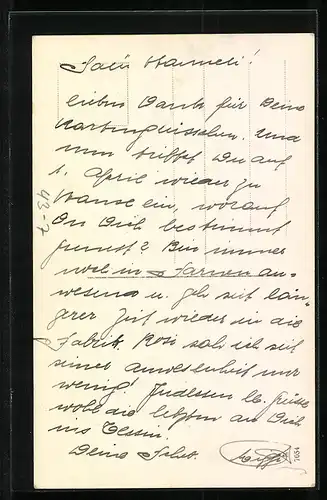 Salü Hanneli!
lieben Dank für Deine
Kartengrüsschen. Und
nun triffst Du auf
1. April wieder zu
Hause ein, worauf
Du Dich bestimmt
freust? Bin immer
noch in Sarnen an-
wesend u. geh seit län-
gerer Zeit wieder in die
Fabrik. Rösi sah ich seit
seiner Anwesenheit nur
wenig! Indessen lb. Grüsse
wohl die letzten an Dich
ins Tessin.
Deine
43-7
7054